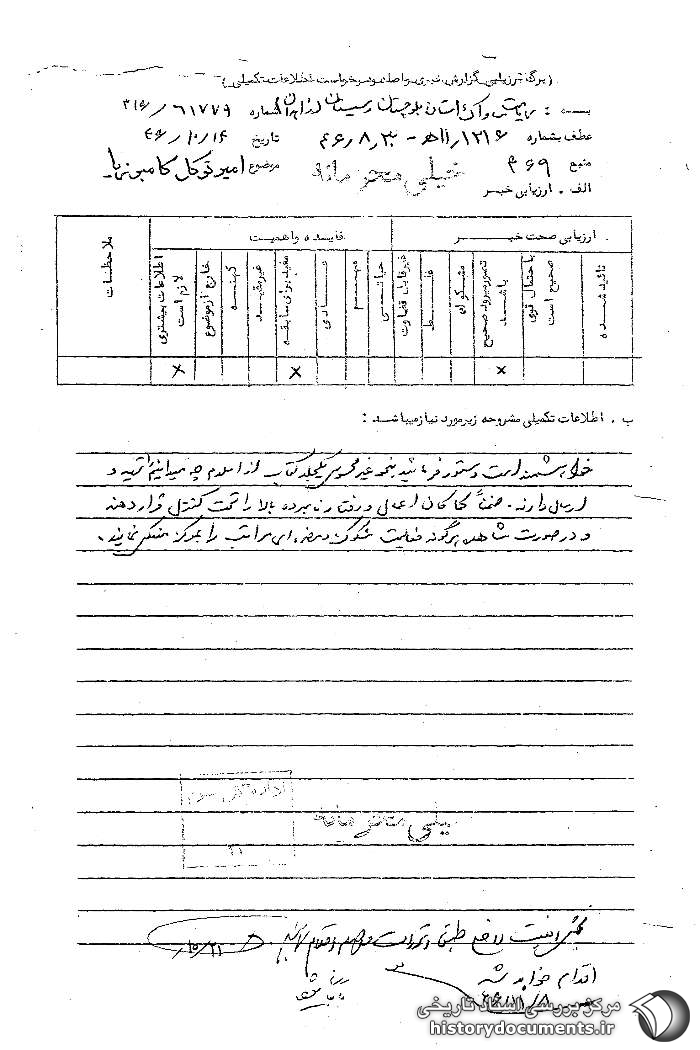 (برگ ارزیابی گزارش خبری واصله و درخواست اطلاعات تکمیلی)
به : ریاست ساواک استان بلوچستان و سیستان از تهران شماره ۳۱۶/۶۱۷۷۹
عطف بشماره ۱۱/۱۲۱۶ه‍ - ۴۶/۸/۳۰ تاریخ ۴۶/۱۰/۱۶
منبع ۴۶۹ خیلی محرمانه موضوع امیر توکل کامبوزیا
الف . ارزیابی خبر
ارزیابی صحت خبر
فایده و اهمیت
ملاحظات
تائید شده
باحتمال قوی صحیح است
تصور میرود صحیح باشد
مشکوک
غلط
غیر قابل قضاوت
حیاتی
مهم
عادی
مفید برای سابقه
غیر مفید
کهنه
خارج از موضوع
اطلاعات بیشتری لازم است
× × ×
ب . اطلاعات تکمیلی مشروحه زیر مورد نیاز میباشد :
خواهشمند است دستور فرمائید بنحو غیر محسوس یکجلد کتاب از اسلام چه میدانیم تهیه و
ارسال دارند. ضمناً کماکان اعمال و رفتار نامبرده بالا را تحت کنترل قرار دهند
و در صورت مشاهده هرگونه فعالیت مشکوک و مضره ای مراتب را بمرکز منعکس نمایند.
اداره کل سوم
۳۱
خیلی محرمانه
طبق
اقدام خواهد شد
۴۶/۱۱/۸
مرکز بررسی اسناد تاریخی
historydocuments.ir